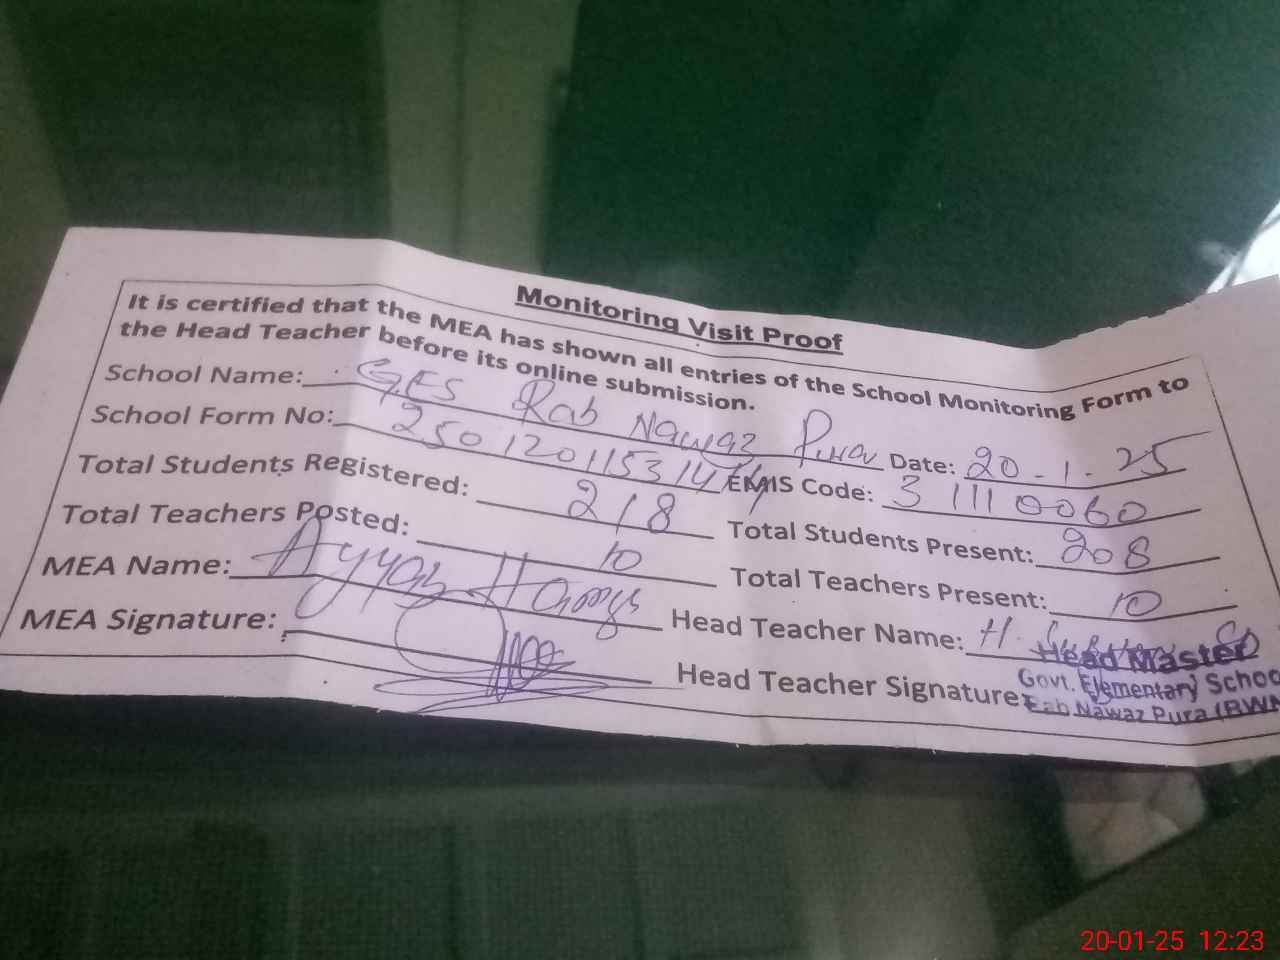 Monitoring Visit Proof
It is certified that the MEA has shown all entries of the School Monitoring Form to
the Head Teacher before its online submission.
School Name: GES Rab Nawaz Pura Date: 20-1-25
School Form No: 2501201153144 EMIS Code: 31110060
Total Students Registered: 218 Total Students Present: 208
Total Teachers Posted: 10 Total Teachers Present: 10
MEA Name: Ayyaz Head Teacher Name: H.
MEA Signature: Head Teacher Signature
Head Master
Govt. Elementary School
Rab Nawaz Pura (BWN
20-01-25 12:23